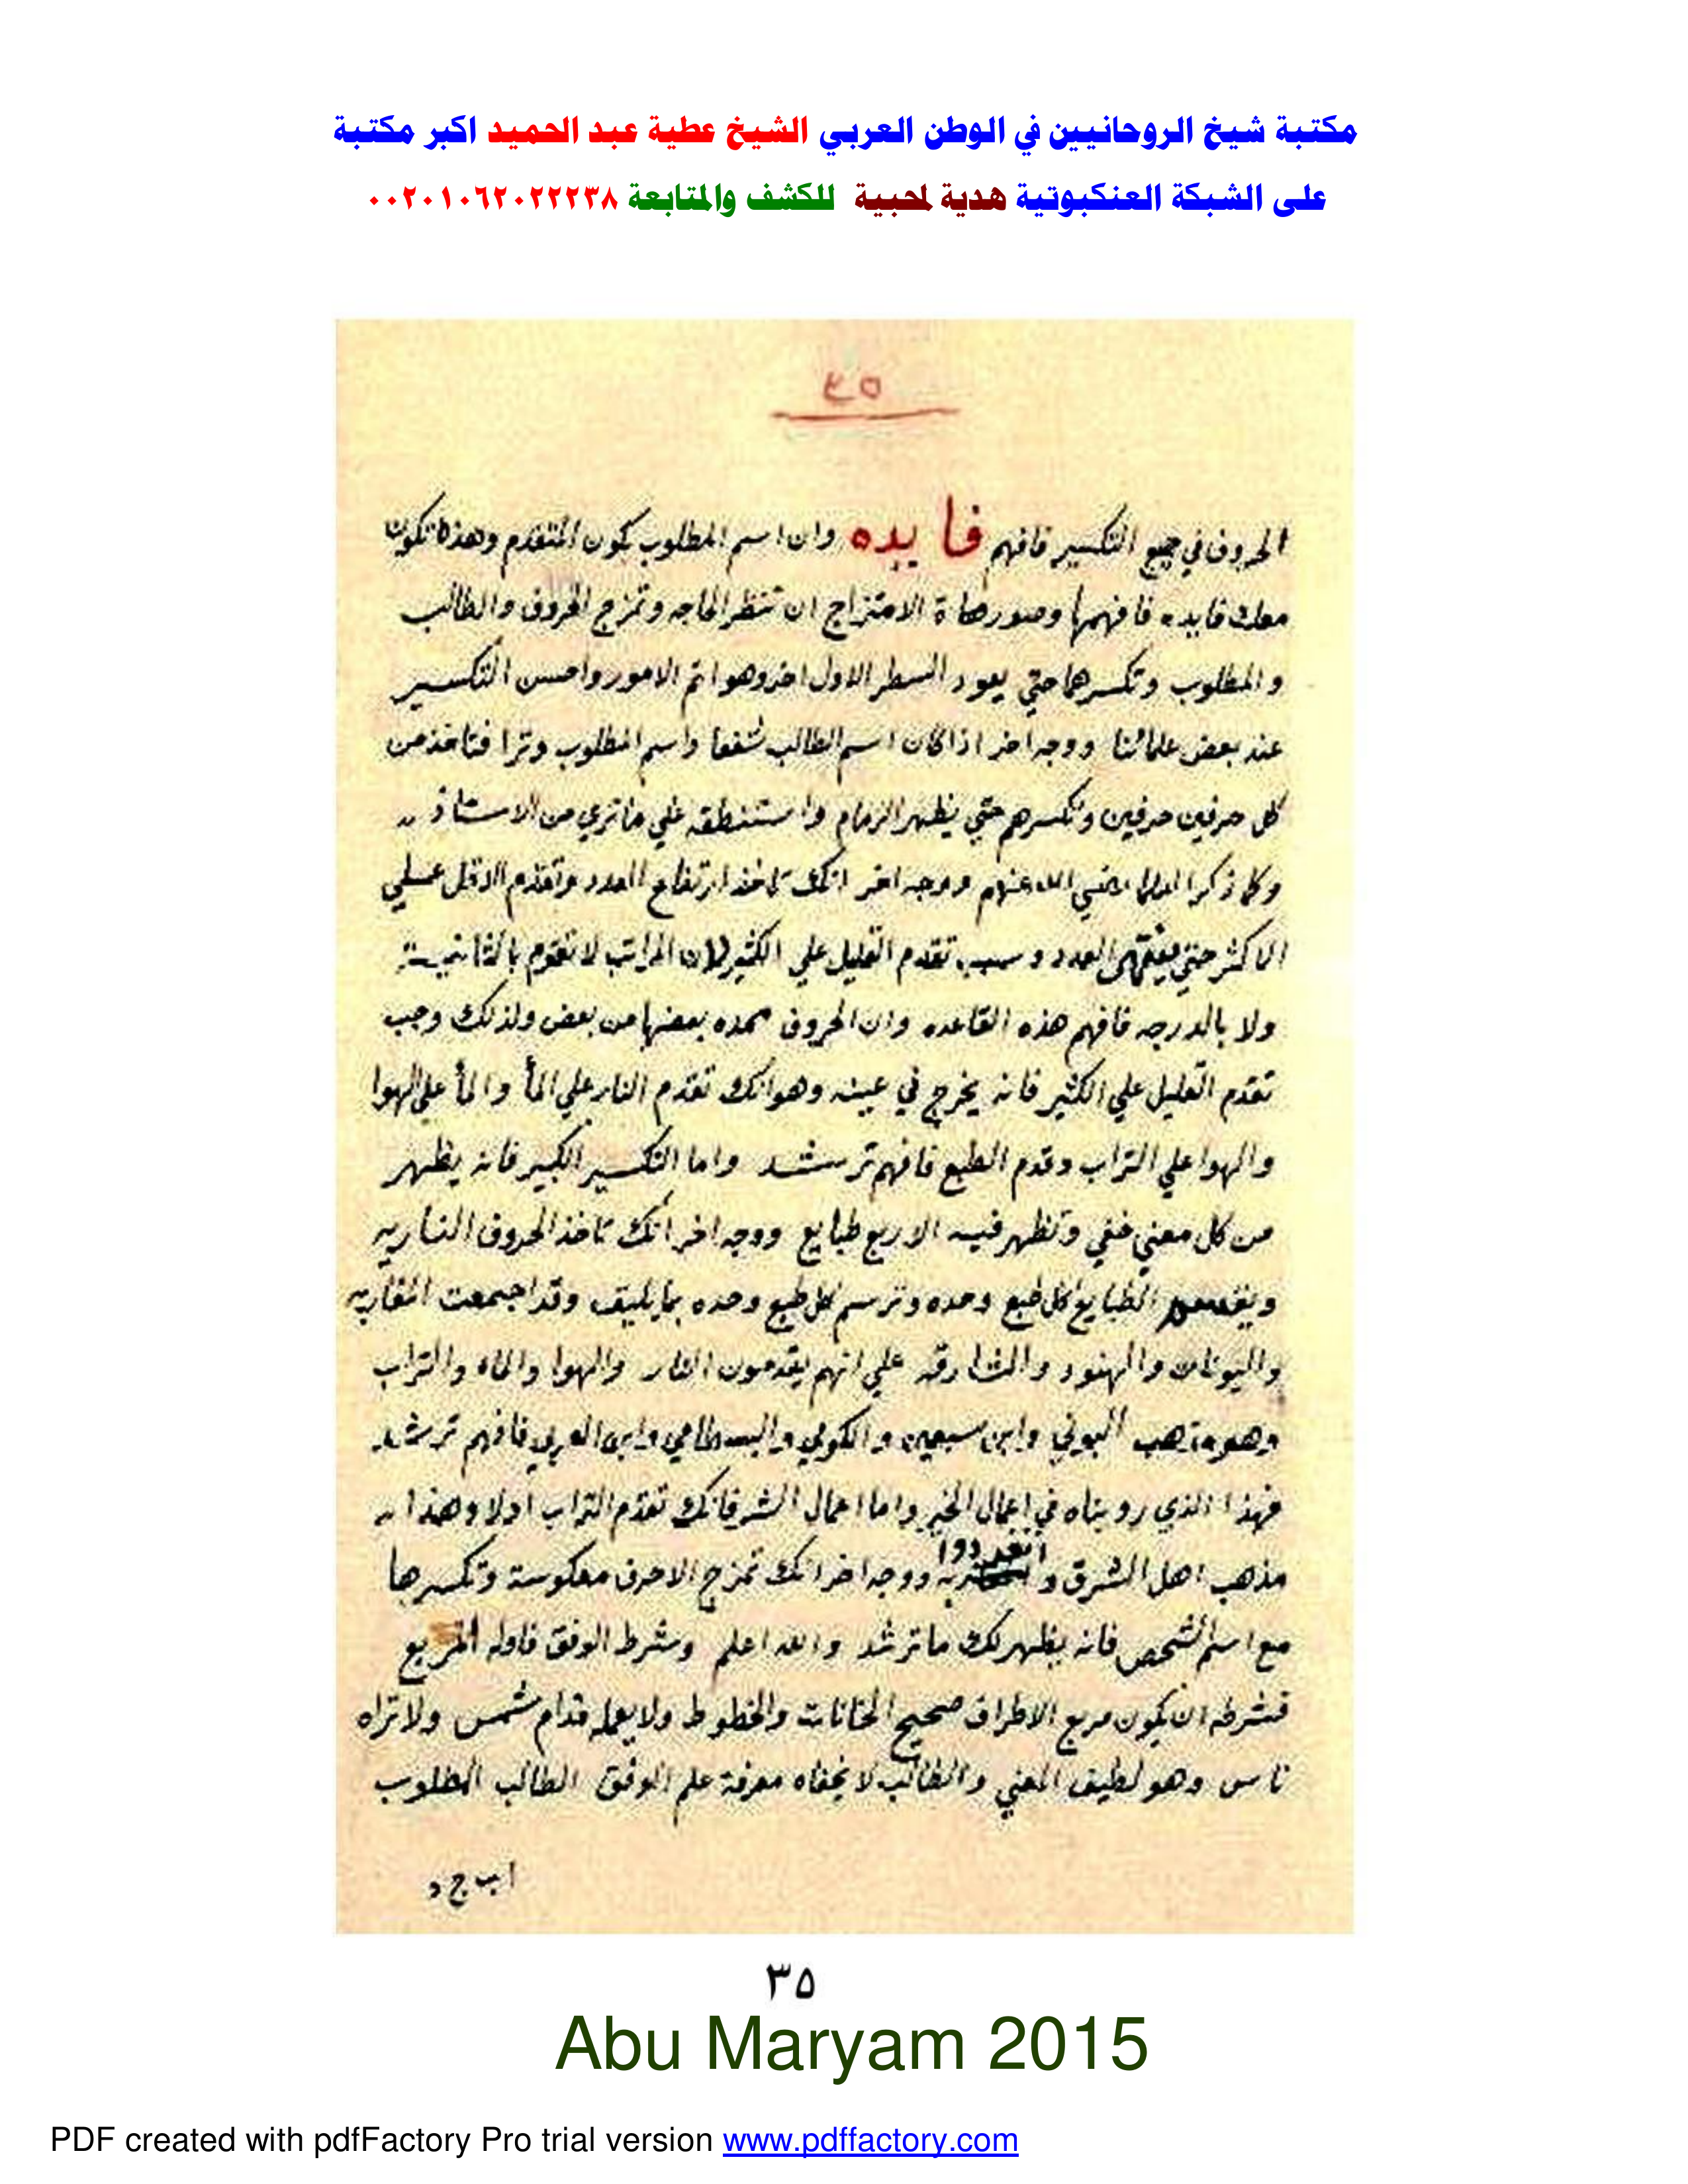 مكتبة شيخ الروحانيين في الوطن العربي الشيخ عطية عبد الحميد اكبر مكتبة
على الشبكة العنكبوتية هدية لمحبية للكشف والمتابعة ٠٠٢٠١٠٦٢٠٢٢٢٣٨
٣٥
الحروف في جميع التكسير فافهم فايده وان اسم المطلوب يكون المتقدم وهذه تكون
معك فايده فافهمها وصورهاة الامتزاج ان تنظر الحاجه وتمزج الحروف والطالب
والمطلوب وتكسرها حتي يعود السطر الاول اخر وهو اتم الامور واحسن التكسير
عند بعض علمائنا ووجه اخر اذا كان اسم الطالب شفعا واسم المطلوب وترا فتاخذ من
كل حرفين حرفين وتكسرهم حتي يظهر الزمام واستنطقه علي ما تري من الاستاذ
وكما ذكر العلما رضي الله عنهم ووجه اخر انك تاخذ ارتفاع العدد وتقدم الاقل علي
الاكثر حتي ينتهي العدد وسبب تقدم القليل علي الكثير لان المراتب لا تقوم بالثانيه
ولا بالدرجه فافهم هذه القاعده وان الحروف ممده بعضها من بعض ولذلك وجب
تقدم القليل علي الكثير فانه يخرج في عينه وهو انك تقدم النار علي المأ والمأ علي الهوا
والهوا علي التراب وقدم الطبع فافهم ترشد واما التكسير الكبير فانه يظهر
من كل معني خفي وتظهر فيه الاربع طبايع ووجه اخر انك تاخذ الحروف الناريه
الطبايع كل طبع وحده وترسم كل طبع وحده بما يليق وقد اجمعت المغاربه
واليونان والهنود والمشارقه علي انهم يقدمون النار والهوا والماء والتراب
وهو مذهب البوني وابن سبعين والكومي والبسطامي وابن العربي فافهم ترشد
فهذا الذي رويناه في اعمال الخير واما اعمال الشر فانك تقدم التراب اولا وهذا
مذهب اهل الشرق و انفردوا به ووجه اخر انك تمزج الاحرف معكوسة وتكسرها
مع اسم الشخص فانه يظهر لك ما ترشد والله اعلم وشرط الوفق فاوله المربع
فشرطه ان يكون مربع الاطراف صحيح الخانات والخطوط ولا يعمله قدام شمس ولا تراه
ناس وهو لطيف المعني والطالب لا يخفاه معرفة علم الوفق الطالب المطلوب
اب ج د
٣٥
Abu Maryam 2015
PDF created with pdfFactory Pro trial version www.pdffactory.com